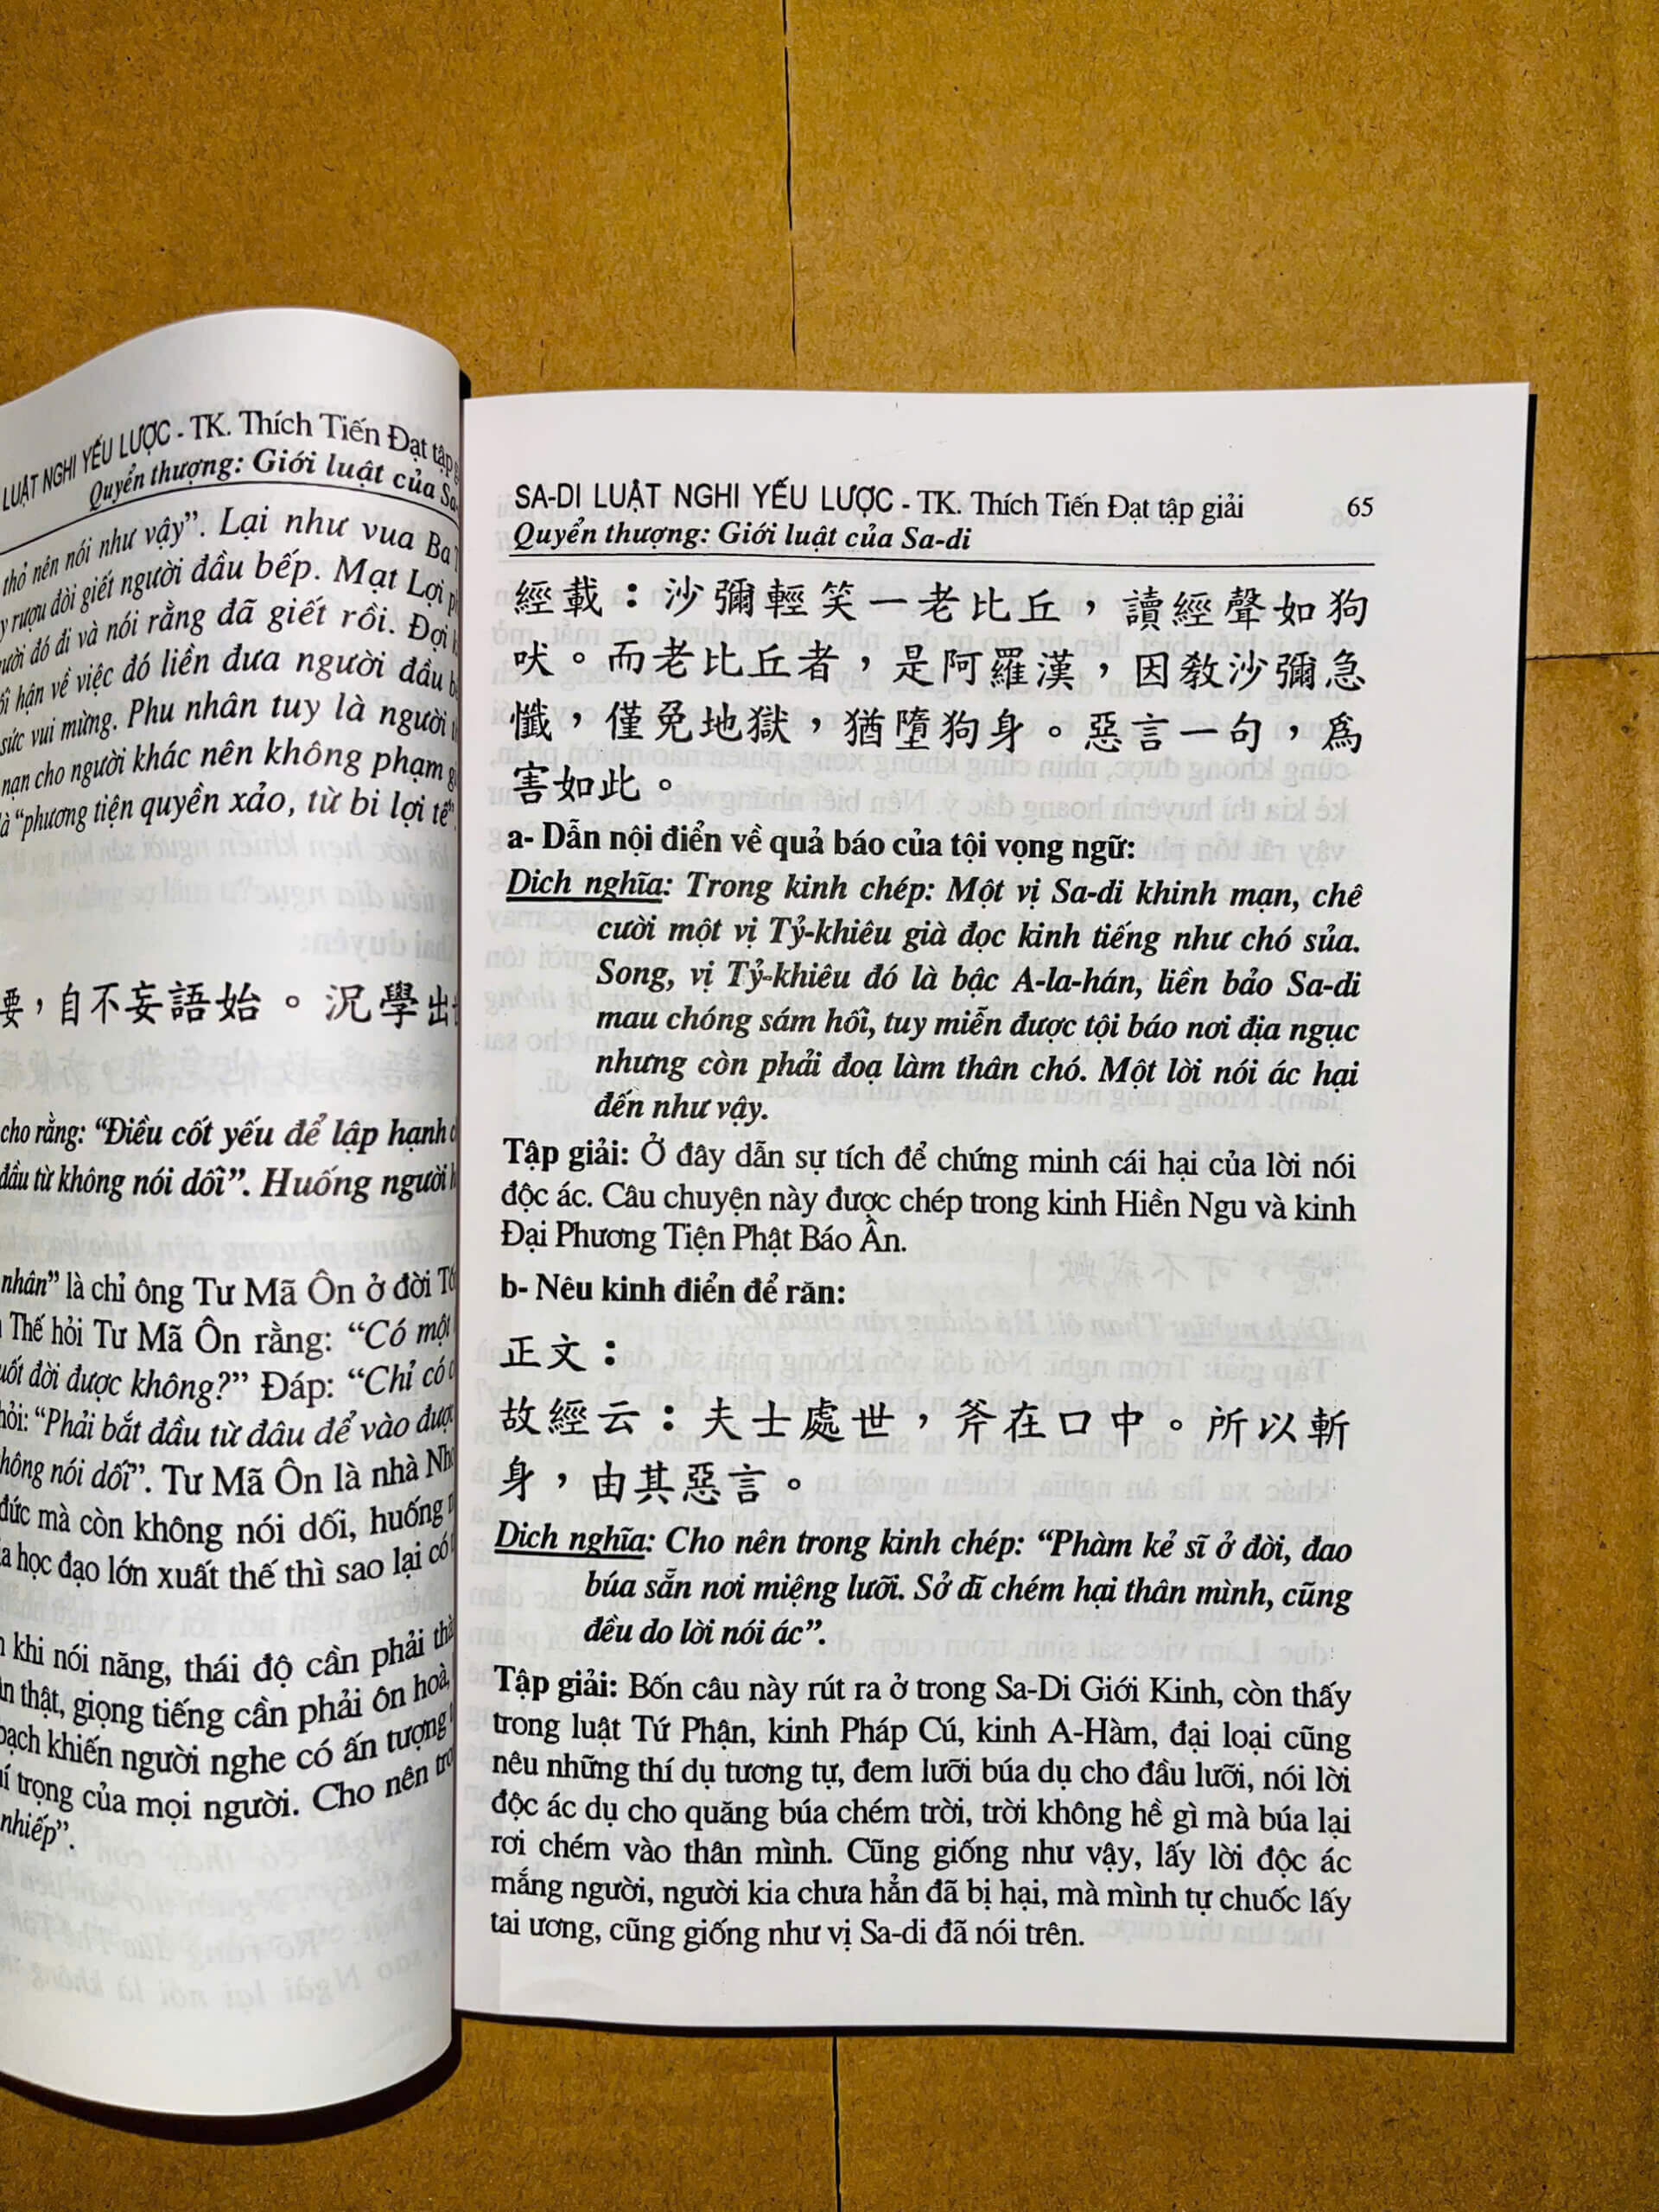 LUẬT NGHI YẾU LƯỢC - TK. Thích Tiến Đạt tập
Quyển thượng: Giới luật của Sa-
thỏ nên nói như vậy”. Lại như vua Ba
rượu đòi giết người đầu bếp. Mạt Lợi
đó đi và nói rằng đã giết rồi. Đợi
hận về việc đó liền đưa người đầu
sức vui mừng. Phu nhân tuy là người
nạn cho người khác nên không phạm
“phương tiện quyền xảo, từ bi lợi tế”
要，自不妄語始。況學出
cho rằng: “Điều cốt yếu để lập hạnh
đầu từ không nói dối”. Huống người
nhân” là chỉ ông Tư Mã Ôn ở đời
Thế hỏi Tư Mã Ôn rằng: “Có một
đời được không?” Đáp: “Chỉ có
hỏi: “Phải bắt đầu từ đâu để vào được
không nói dối”. Tư Mã Ôn là nhà
đức mà còn không nói dối, huống
học đạo lớn xuất thế thì sao lại có
khi nói năng, thái độ cần phải
thật, giọng tiếng cần phải ôn hoà,
khiến người nghe có ấn tượng
trọng của mọi người. Cho nên
nhiếp”.
SA-DI LUẬT NGHI YẾU LƯỢC - TK. Thích Tiến Đạt tập giải 65
Quyển thượng: Giới luật của Sa-di
經載：沙彌輕笑一老比丘，讀經聲如狗
吠。而老比丘者，是阿羅漢，因教沙彌急
懺，僅免地獄，猶墮狗身。惡言一句，爲
害如此。
a- Dẫn nội điển về quả báo của tội vọng ngữ:
Dich nghĩa: Trong kinh chép: Một vị Sa-di khinh mạn, chê
cười một vị Tỷ-khiêu già đọc kinh tiếng như chó sủa.
Song, vị Tỷ-khiêu đó là bậc A-la-hán, liền bảo Sa-di
mau chóng sám hối, tuy miễn được tội báo nơi địa ngục
nhưng còn phải đoạ làm thân chó. Một lời nói ác hại
đến như vậy.
Tập giải: Ở đây dẫn sự tích để chứng minh cái hại của lời nói
độc ác. Câu chuyện này được chép trong kinh Hiền Ngu và kinh
Đại Phương Tiện Phật Báo Ân.
b- Nêu kinh điển để răn:
正文：
故經云：夫士處世，斧在口中。所以斬
身，由其惡言。
Dich nghĩa: Cho nên trong kinh chép: “Phàm kẻ sĩ ở đời, đao
búa sẵn nơi miệng lưỡi. Sở dĩ chém hại thân mình, cũng
đều do lời nói ác”.
Tập giải: Bốn câu này rút ra ở trong Sa-Di Giới Kinh, còn thấy
trong luật Tứ Phận, kinh Pháp Cú, kinh A-Hàm, đại loại cũng
nêu những thí dụ tương tự, đem lưỡi búa dụ cho đầu lưỡi, nói lời
độc ác dụ cho quăng búa chém trời, trời không hề gì mà búa lại
rơi chém vào thân mình. Cũng giống như vậy, lấy lời độc ác
mắng người, người kia chưa hẳn đã bị hại, mà mình tự chuốc lấy
tai ương, cũng giống như vị Sa-di đã nói trên.